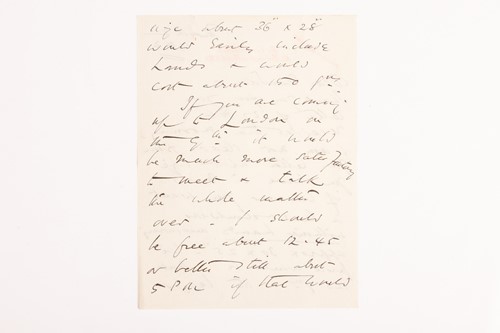 size about 36" x 28"
would easily include
hands & would
cost about 150 gns
If you are coming
up to London on
the 9th it would
be much more satisfactory
to meet & talk
the whole matter
over - I should
be free about 12-45
or better still about
5 P.M. if that would